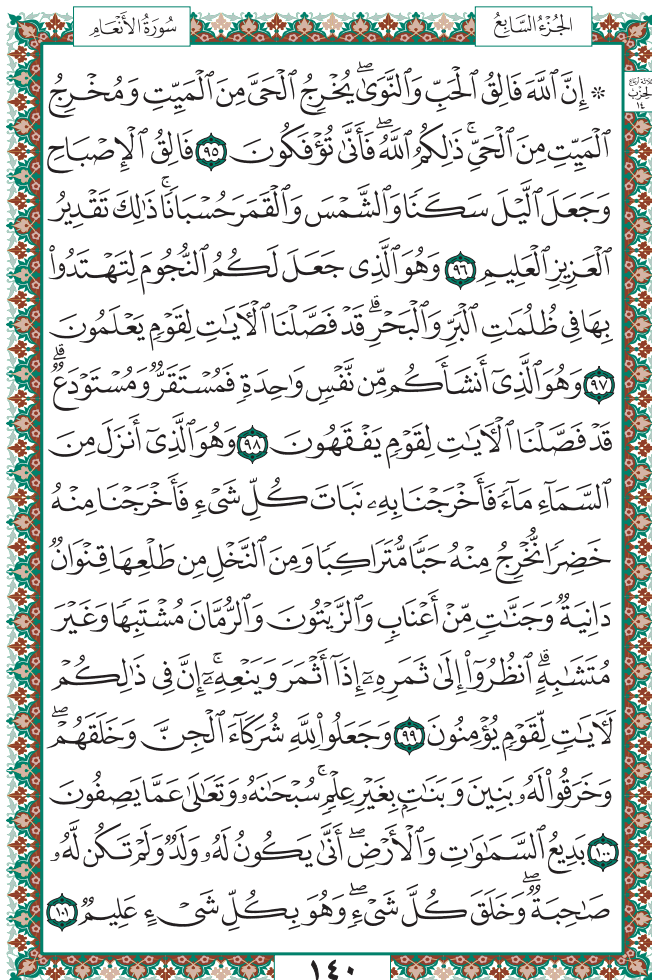 الجُزْءُ السَّابِعُ
سُورَةُ الأَنْعَامِ
ثلاثة أرباع
الحزب
١٤
۞ إِنَّ ٱللَّهَ فَالِقُ ٱلْحَبِّ وَٱلنَّوَىٰۖ يُخْرِجُ ٱلْحَىَّ مِنَ ٱلْمَيِّتِ وَمُخْرِجُ
ٱلْمَيِّتِ مِنَ ٱلْحَىِّۚ ذَٰلِكُمُ ٱللَّهُۖ فَأَنَّىٰ تُؤْفَكُونَ ٩٥ فَالِقُ ٱلْإِصْبَاحِ
وَجَعَلَ ٱلَّيْلَ سَكَنًا وَٱلشَّمْسَ وَٱلْقَمَرَ حُسْبَانًاۚ ذَٰلِكَ تَقْدِيرُ
ٱلْعَزِيزِ ٱلْعَلِيمِ ٩٦ وَهُوَ ٱلَّذِى جَعَلَ لَكُمُ ٱلنُّجُومَ لِتَهْتَدُوا۟
بِهَا فِى ظُلُمَٰتِ ٱلْبَرِّ وَٱلْبَحْرِۗ قَدْ فَصَّلْنَا ٱلْأٓيَٰتِ لِقَوْمٍ يَعْلَمُونَ
٩٧ وَهُوَ ٱلَّذِىٓ أَنشَأَكُم مِّن نَّفْسٍ وَٰحِدَةٍ فَمُسْتَقَرٌّ وَمُسْتَوْدَعٌۗ
قَدْ فَصَّلْنَا ٱلْأٓيَٰتِ لِقَوْمٍ يَفْقَهُونَ ٩٨ وَهُوَ ٱلَّذِىٓ أَنزَلَ مِنَ
ٱلسَّمَآءِ مَآءً فَأَخْرَجْنَا بِهِۦ نَبَاتَ كُلِّ شَىْءٍ فَأَخْرَجْنَا مِنْهُ
خَضِرًا نُّخْرِجُ مِنْهُ حَبًّا مُّتَرَاكِبًا وَمِنَ ٱلنَّخْلِ مِن طَلْعِهَا قِنْوَانٌ
دَانِيَةٌ وَجَنَّٰتٍ مِّنْ أَعْنَابٍ وَٱلزَّيْتُونَ وَٱلرُّمَّانَ مُشْتَبِهًا وَغَيْرَ
مُتَشَٰبِهٍۗ ٱنظُرُوٓا۟ إِلَىٰ ثَمَرِهِۦٓ إِذَآ أَثْمَرَ وَيَنْعِهِۦٓۚ إِنَّ فِى ذَٰلِكُمْ
لَأٓيَٰتٍ لِّقَوْمٍ يُؤْمِنُونَ ٩٩ وَجَعَلُوا۟ لِلَّهِ شُرَكَآءَ ٱلْجِنَّ وَخَلَقَهُمْۖ
وَخَرَقُوا۟ لَهُۥ بَنِينَ وَبَنَٰتٍۭ بِغَيْرِ عِلْمٍۚ سُبْحَٰنَهُۥ وَتَعَٰلَىٰ عَمَّا يَصِفُونَ
١٠٠ بَدِيعُ ٱلسَّمَٰوَٰتِ وَٱلْأَرْضِۖ أَنَّىٰ يَكُونُ لَهُۥ وَلَدٌ وَلَمْ تَكُن لَّهُۥ
صَٰحِبَةٌۖ وَخَلَقَ كُلَّ شَىْءٍۖ وَهُوَ بِكُلِّ شَىْءٍ عَلِيمٌ ١٠١
١٤٠